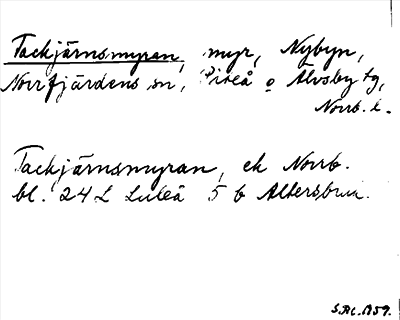 Tackjärnsmyran, myr, Nybyn,
Norrfjärdens sn, Piteå o Älvsby tg,
Norrb. l.
Tackjärnsmyran, ek Norrb.
bl. 24 L Luleå 5 b Altersbruk.
1959.